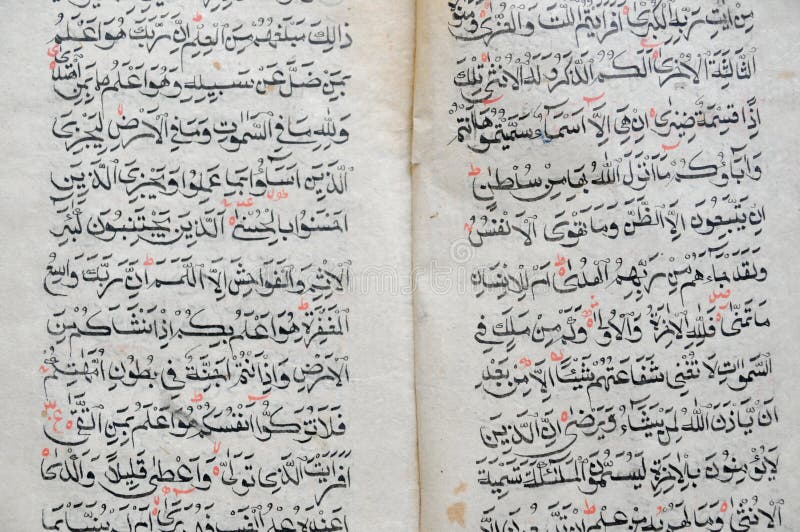 مِنْ اٰيٰتِ رَبِّهِ الْكُبْرٰى اَفَرَاَيْتُمُ اللّٰتَ وَ الْعُزّٰى وَ مَنٰوةَ
الثَّالِثَةَ الْاُخْرٰى اَلَكُمُ الذَّكَرُ وَلَهُ الْاُنْثٰى تِلْكَ
اِذًا قِسْمَةٌ ضِيْزٰى اِنْ هِىَ اِلَّا اَسْمَاءٌ سَمَّيْتُمُوْهَا اَنْتُمْ
وَ اٰبَاؤُكُمْ مَا اَنْزَلَ اللّٰهُ بِهَا مِنْ سُلْطٰنٍ
اِنْ يَتَّبِعُوْنَ اِلَّا الظَّنَّ وَمَا تَهْوَى الْاَنْفُسُ
وَلَقَدْ جَاءَهُمْ مِنْ رَبِّهِمُ الْهُدٰى اَمْ لِلْاِنْسَانِ
مَا تَمَنّٰى فَلِلّٰهِ الْاٰخِرَةُ وَالْاُوْلٰى وَكَمْ مِنْ مَلَكٍ فِى
السَّمٰوٰتِ لَا تُغْنِىْ شَفَاعَتُهُمْ شَيْئًا اِلَّا مِنْ بَعْدِ
اَنْ يَاْذَنَ اللّٰهُ لِمَنْ يَشَاءُ وَيَرْضٰى اِنَّ الَّذِيْنَ
لَا يُؤْمِنُوْنَ بِالْاٰخِرَةِ لَيُسَمُّوْنَ الْمَلٰئِكَةَ تَسْمِيَةَ
ذٰلِكَ مَبْلَغُهُمْ مِنَ الْعِلْمِ اِنَّ رَبَّكَ هُوَ اَعْلَمُ
بِمَنْ ضَلَّ عَنْ سَبِيْلِهٖ وَهُوَ اَعْلَمُ بِمَنِ اهْتَدٰى
وَلِلّٰهِ مَا فِى السَّمٰوٰتِ وَمَا فِى الْاَرْضِ لِيَجْزِىَ
الَّذِيْنَ اَسَاؤُا بِمَا عَمِلُوْا وَيَجْزِىَ الَّذِيْنَ
اَحْسَنُوْا بِالْحُسْنٰى اَلَّذِيْنَ يَجْتَنِبُوْنَ كَبٰئِرَ
الْاِثْمِ وَ الْفَوَاحِشَ اِلَّا اللَّمَمَ اِنَّ رَبَّكَ وَاسِعُ
الْمَغْفِرَةِ هُوَ اَعْلَمُ بِكُمْ اِذْ اَنْشَاَكُمْ مِنَ
الْاَرْضِ وَ اِذْ اَنْتُمْ اَجِنَّةٌ فِىْ بُطُوْنِ اُمَّهٰتِكُمْ
فَلَا تُزَكُّوْا اَنْفُسَكُمْ هُوَ اَعْلَمُ بِمَنِ اتَّقٰى
اَفَرَاَيْتَ الَّذِىْ تَوَلّٰى وَاَعْطٰى قَلِيْلًا وَّاَكْدٰى